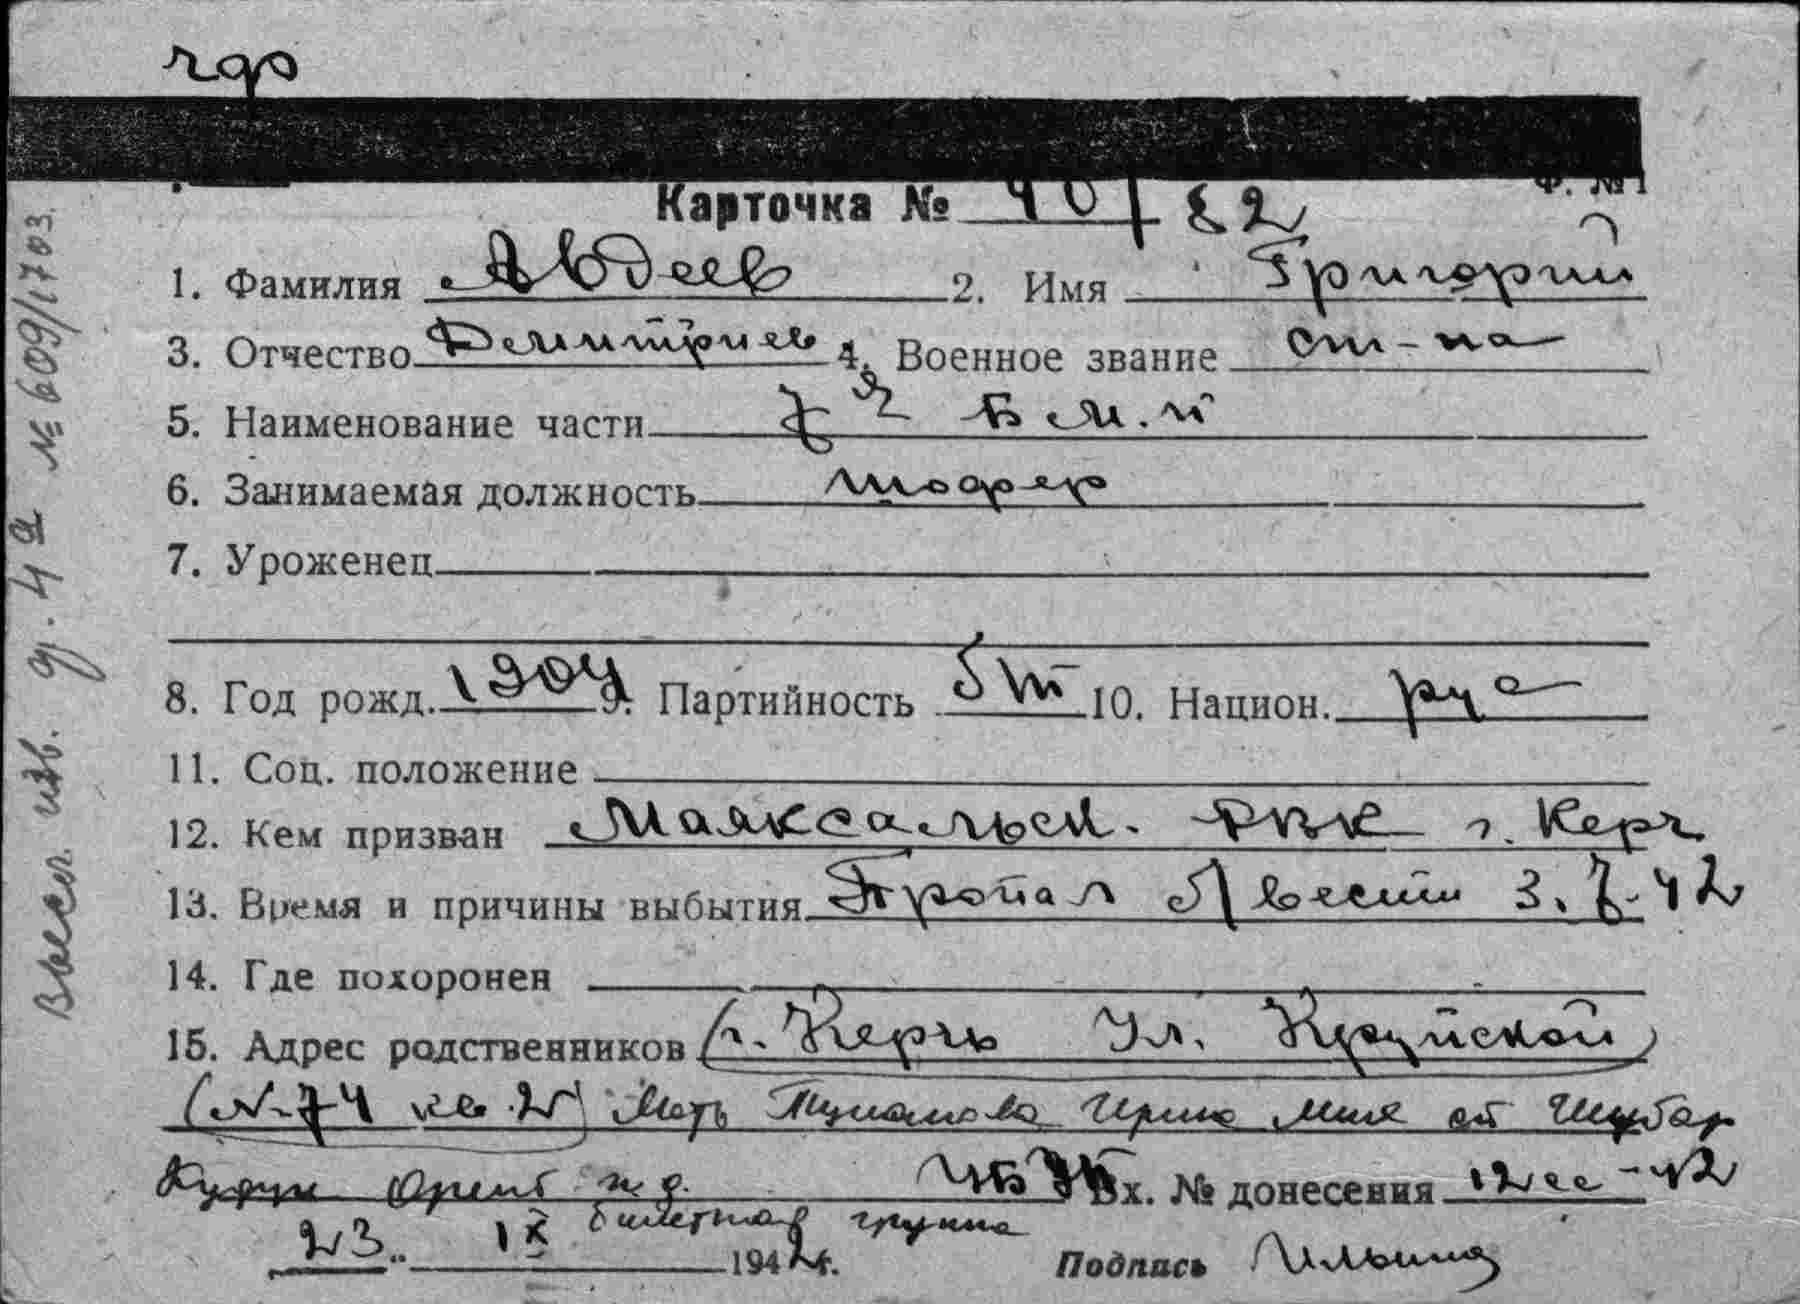 Ф. №1
Карточка № 40/82
1. Фамилия Авдеев 2. Имя Григорий
3. Отчество Демитриев 4. Военное звание ст-на
5. Наименование части 72 Б м.п
6. Занимаемая должность шофер
7. Уроженец
8. Год рожд. 1904 9. Партийность б/п 10. Национ. рус
11. Соц. положение
12. Кем призван Маяксальск. РВК г. Керч
13. Время и причины выбытия Пропал б/вести 3.7.42
14. Где похоронен
15. Адрес родственников (г. Керчь Ул. Крупской)
(N-74 кв. 2) Мать Ирина ст Шубар
Кудук Оренб ж д. Вх. № донесения 12сс-42
билетная группа
23 IX 1942г. Подпись Ильина
Высл. изв. д. 4а № 609/1703.